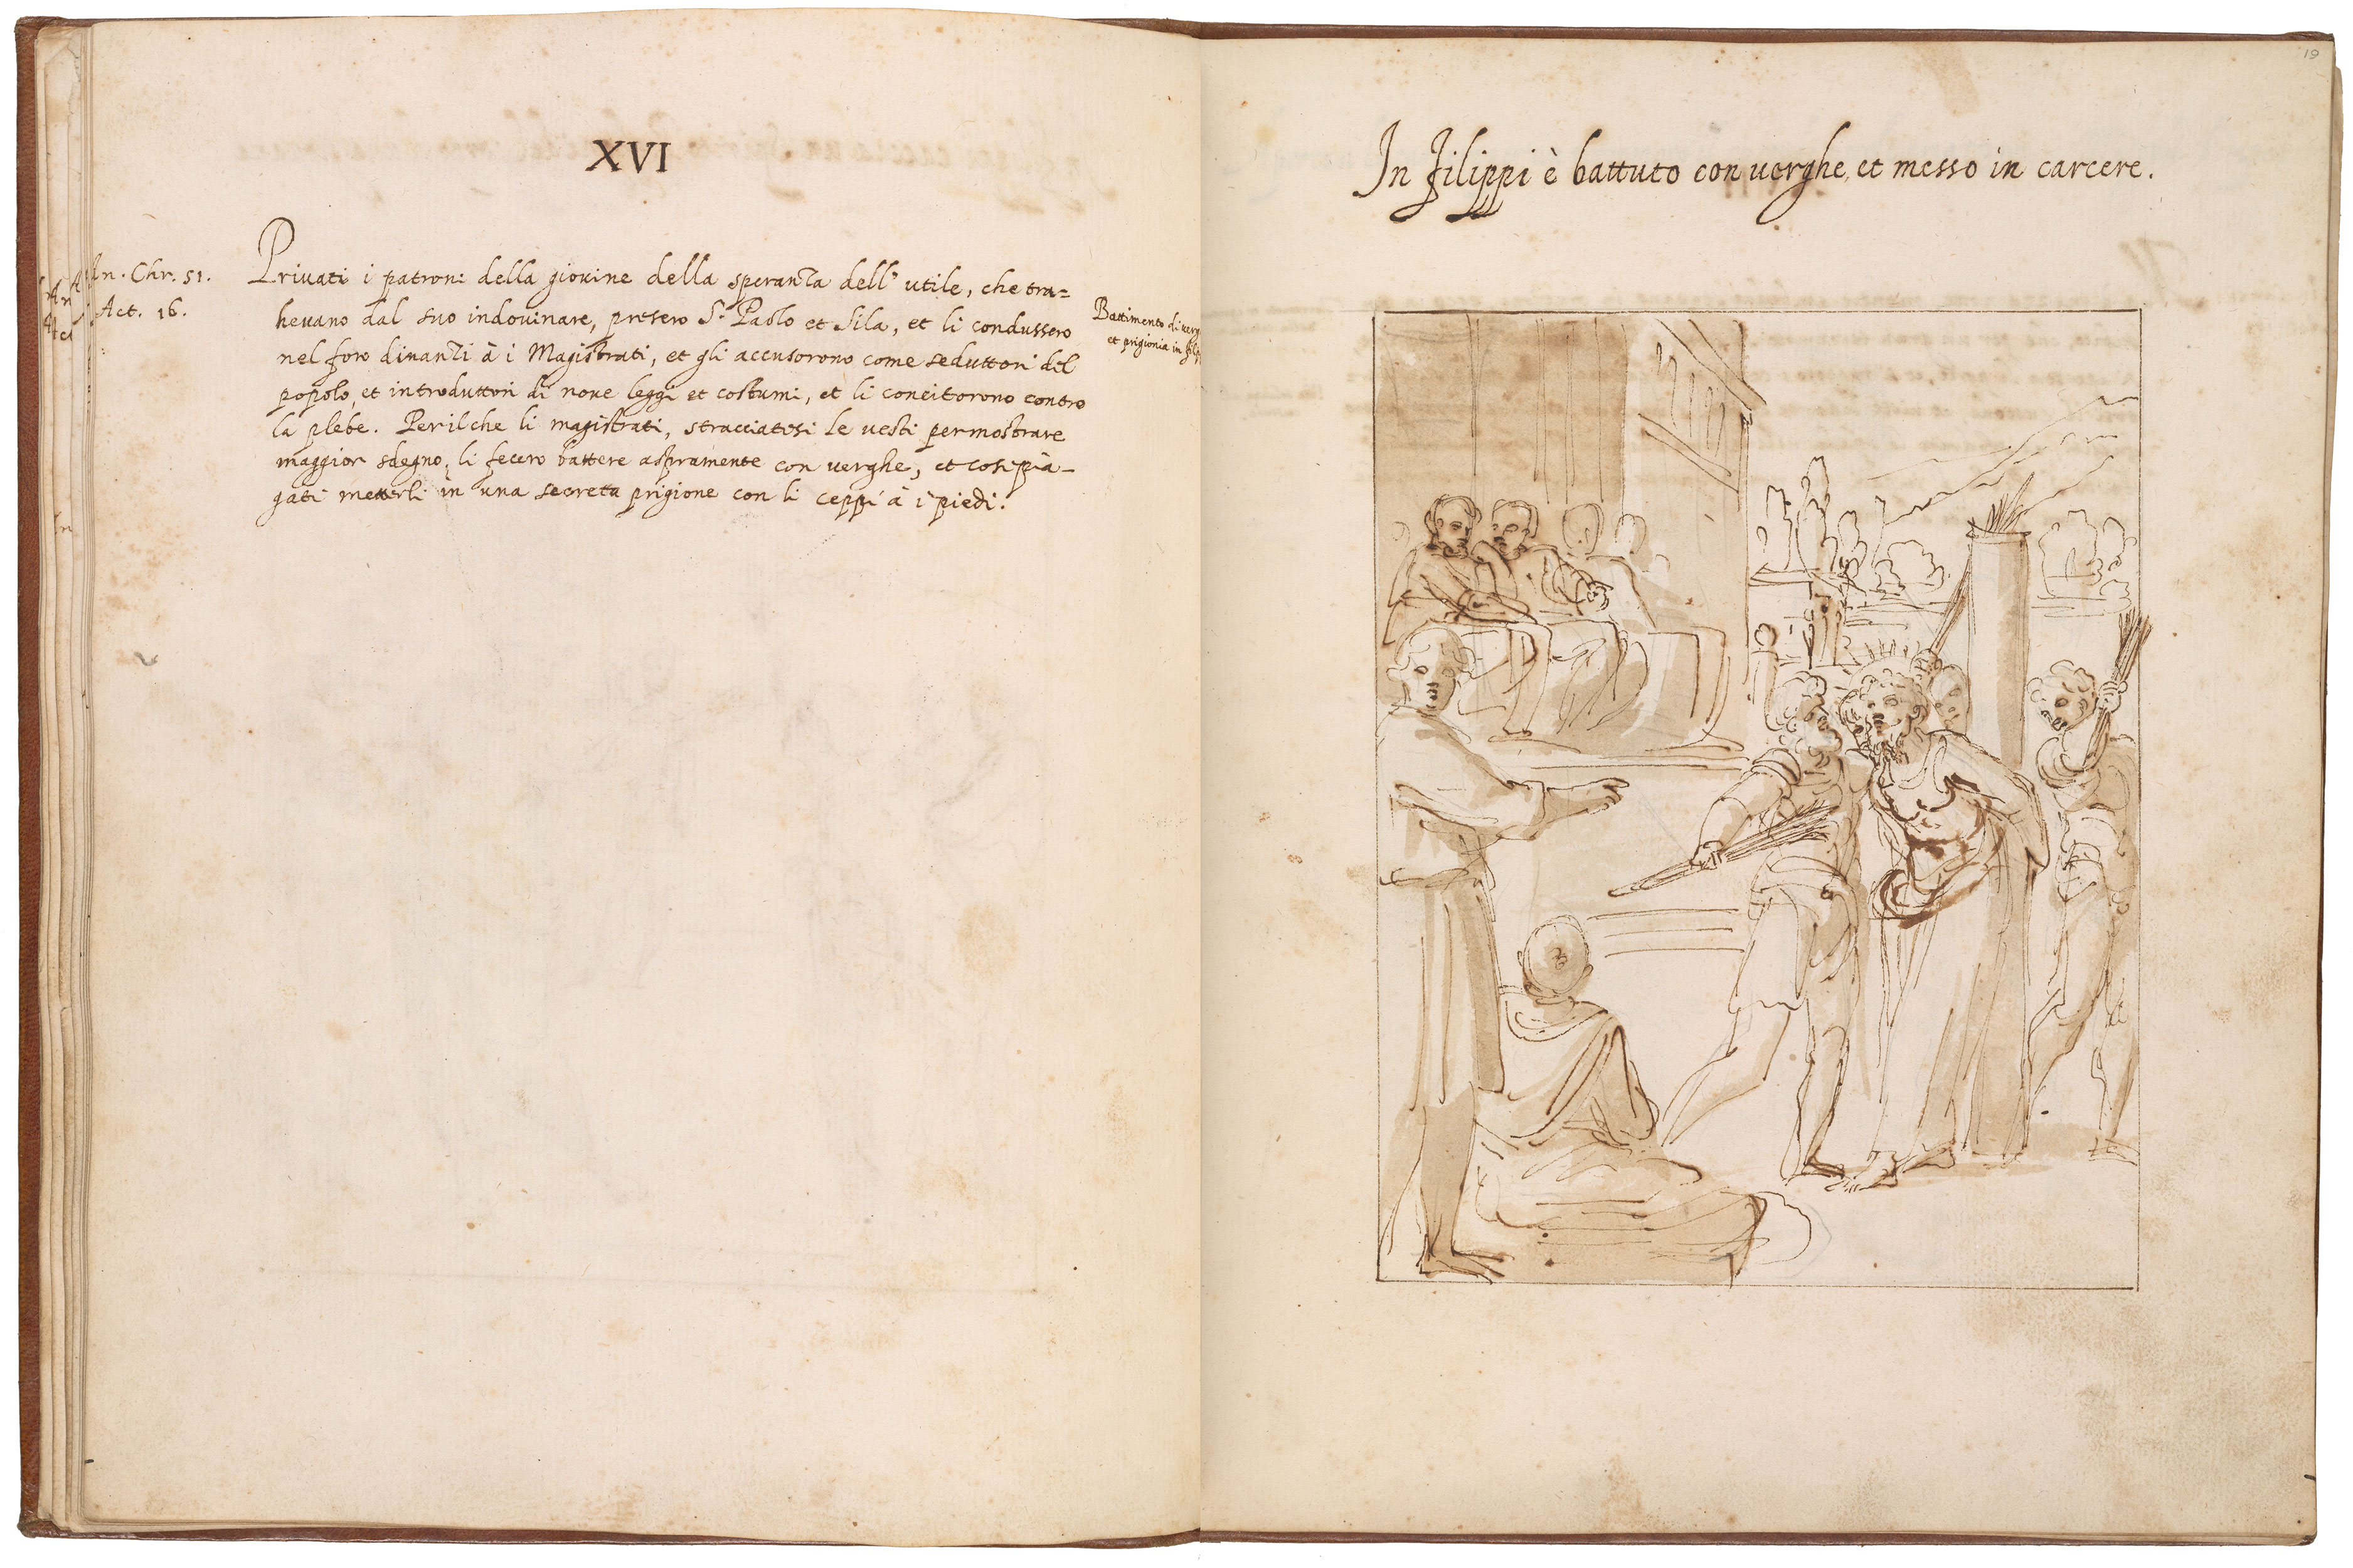 XVI
An. Chr. 51.
Act. 16.
Privati i patroni della giovine della speranza dell' utile, che tra=
hevano dal suo indovinare, presero S. Paolo et Sila, et li condussero
nel foro dinanzi à i Magistrati, et gli accusorono come seduttori del
popolo, et introduttori di nove leggi et costumi, et li concitorono contro
la plebe. Perilche li magistrati, stracciatesi le vesti per mostrare
maggior sdegno, li fecero battere aspramente con verghe, et cosi pia-
gati metterli in una secreta prigione con li ceppi à i piedi.
Battimento di
et prigionia in
19
In Filippi è battuto con verghe, et messo in carcere.